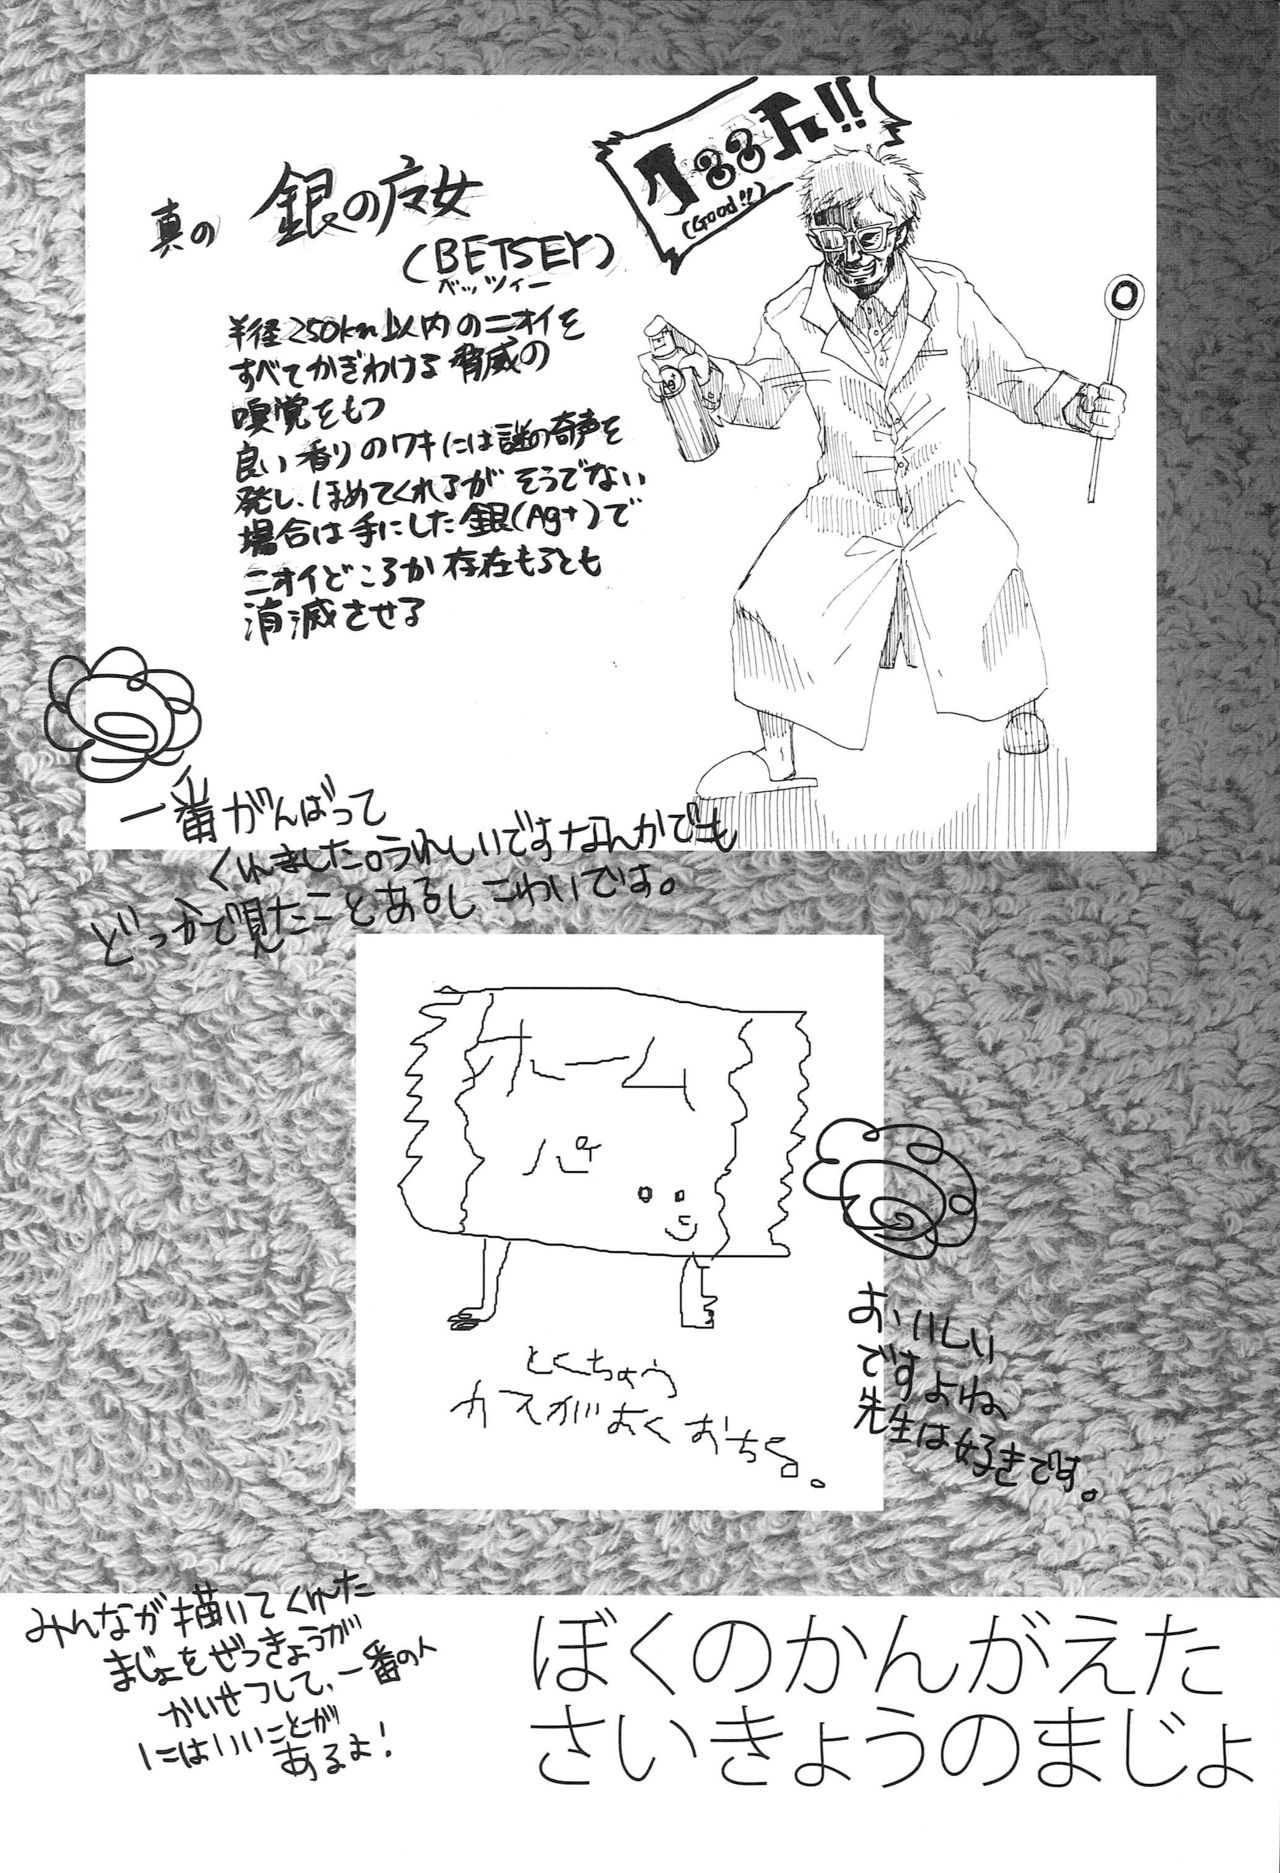 (Good!!)
真の 銀の魔女
(BETSEY)
ベッツィー
半径250km以内のニオイを
すべてかぎわける脅威の
嗅覚をもつ
良い香りのワキには謎の奇声を
発し、ほめてくれるがそうでない
場合は手にした銀(Ag+)で
ニオイどころか存在もろとも
消滅させる
Ag+
一番がんばって
くれました。うれしいですなんかでも
どっかで見たことあるしこわいです。
ホーム
パイ
とくちょう
カスがおくおちる。
おいしい
ですよね、
先生は好きです。
みんなが描いてくれた
まじょをぜっきょうが
かいせつして、一番の人
にはいいことが
あるよ!
ぼくのかんがえた
さいきょうのまじょ